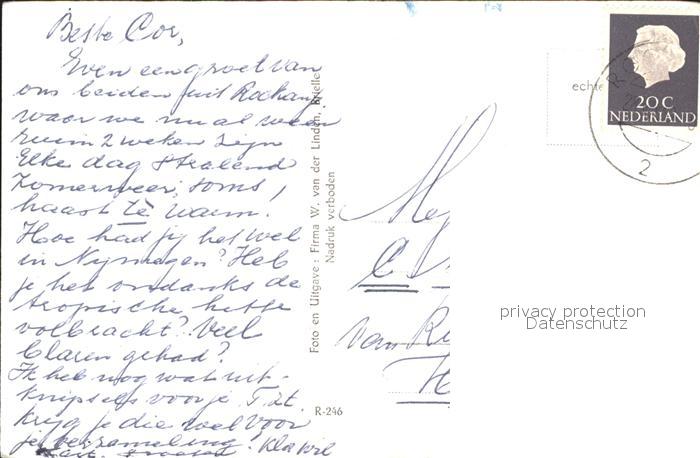 Beste Cor,
Even een groet van
ons beiden uit Rockanje
waar we nu al weer
ruim 2 weken zijn
Elke dag stralend
zomerweer, soms,
haast te warm.
Hoe had jij het wel
in Nijmegen? Heb
je het ondanks de
tropische hitte
volbracht? Veel
blaren gehad?
Ik heb nog wat uit-
knipsels voor je. T.z.t.
krijg je die wel voor
je verzameling.
Foto en Uitgave: Firma W. van der Linden, Brielle
Nadruk verboden
R-246
echte
20 C
NEDERLAND
2
Mej
C
van
privacy protection
Datenschutz